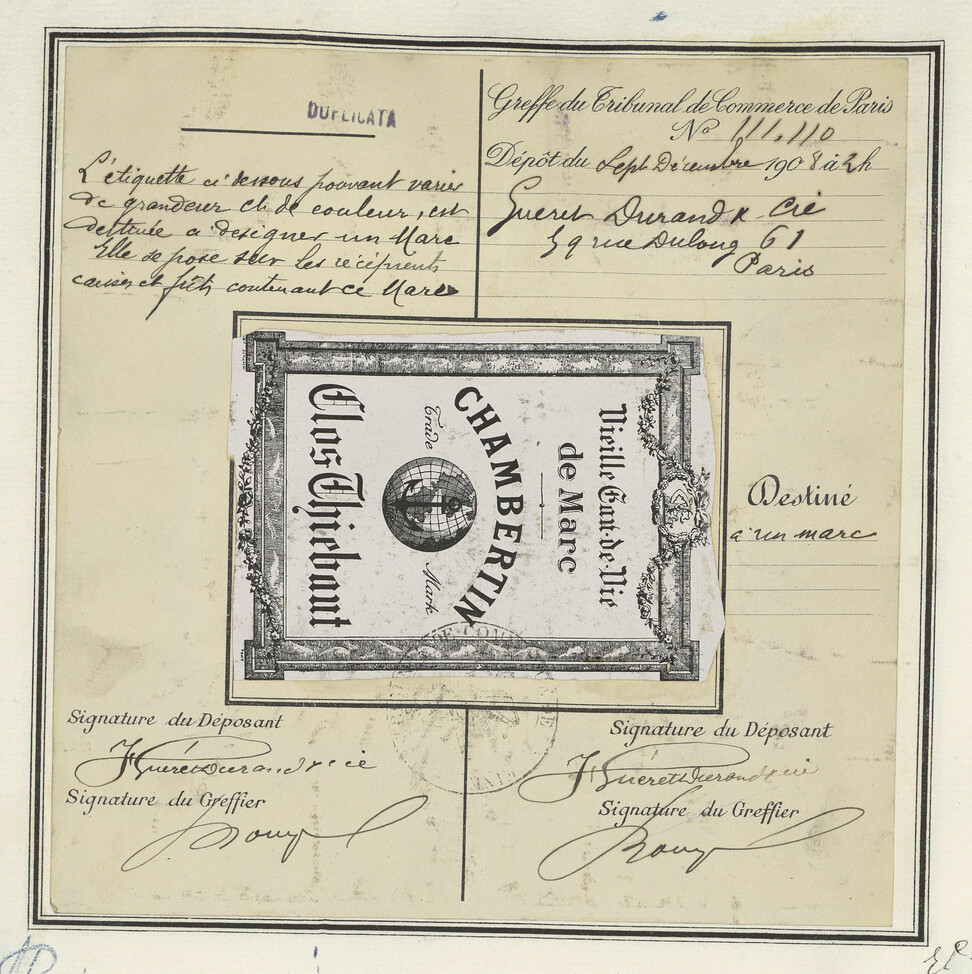 DUPLICATA
L'étiquette ci dessous pouvant varier
de grandeur et de couleur, est
destinée a designer un Marc
Elle se pose sur les récipients
caisses et fûts contenant ce Marc
Greffe du Tribunal de Commerce de Paris
No 111.110
Dépôt du Sept Décembre 1908 à 2h
Gueret Durand & Cie
59 rue Dulong 61
Paris
Vieille Eau-de-Vie
de Marc
CHAMBERTIN
Trade Mark
Clos Thiebaut
Destiné
à un marc
Signature du Déposant
Guéret Durand & cie
Signature du Greffier
Signature du Déposant
Guéret Durand & cie
Signature du Greffier